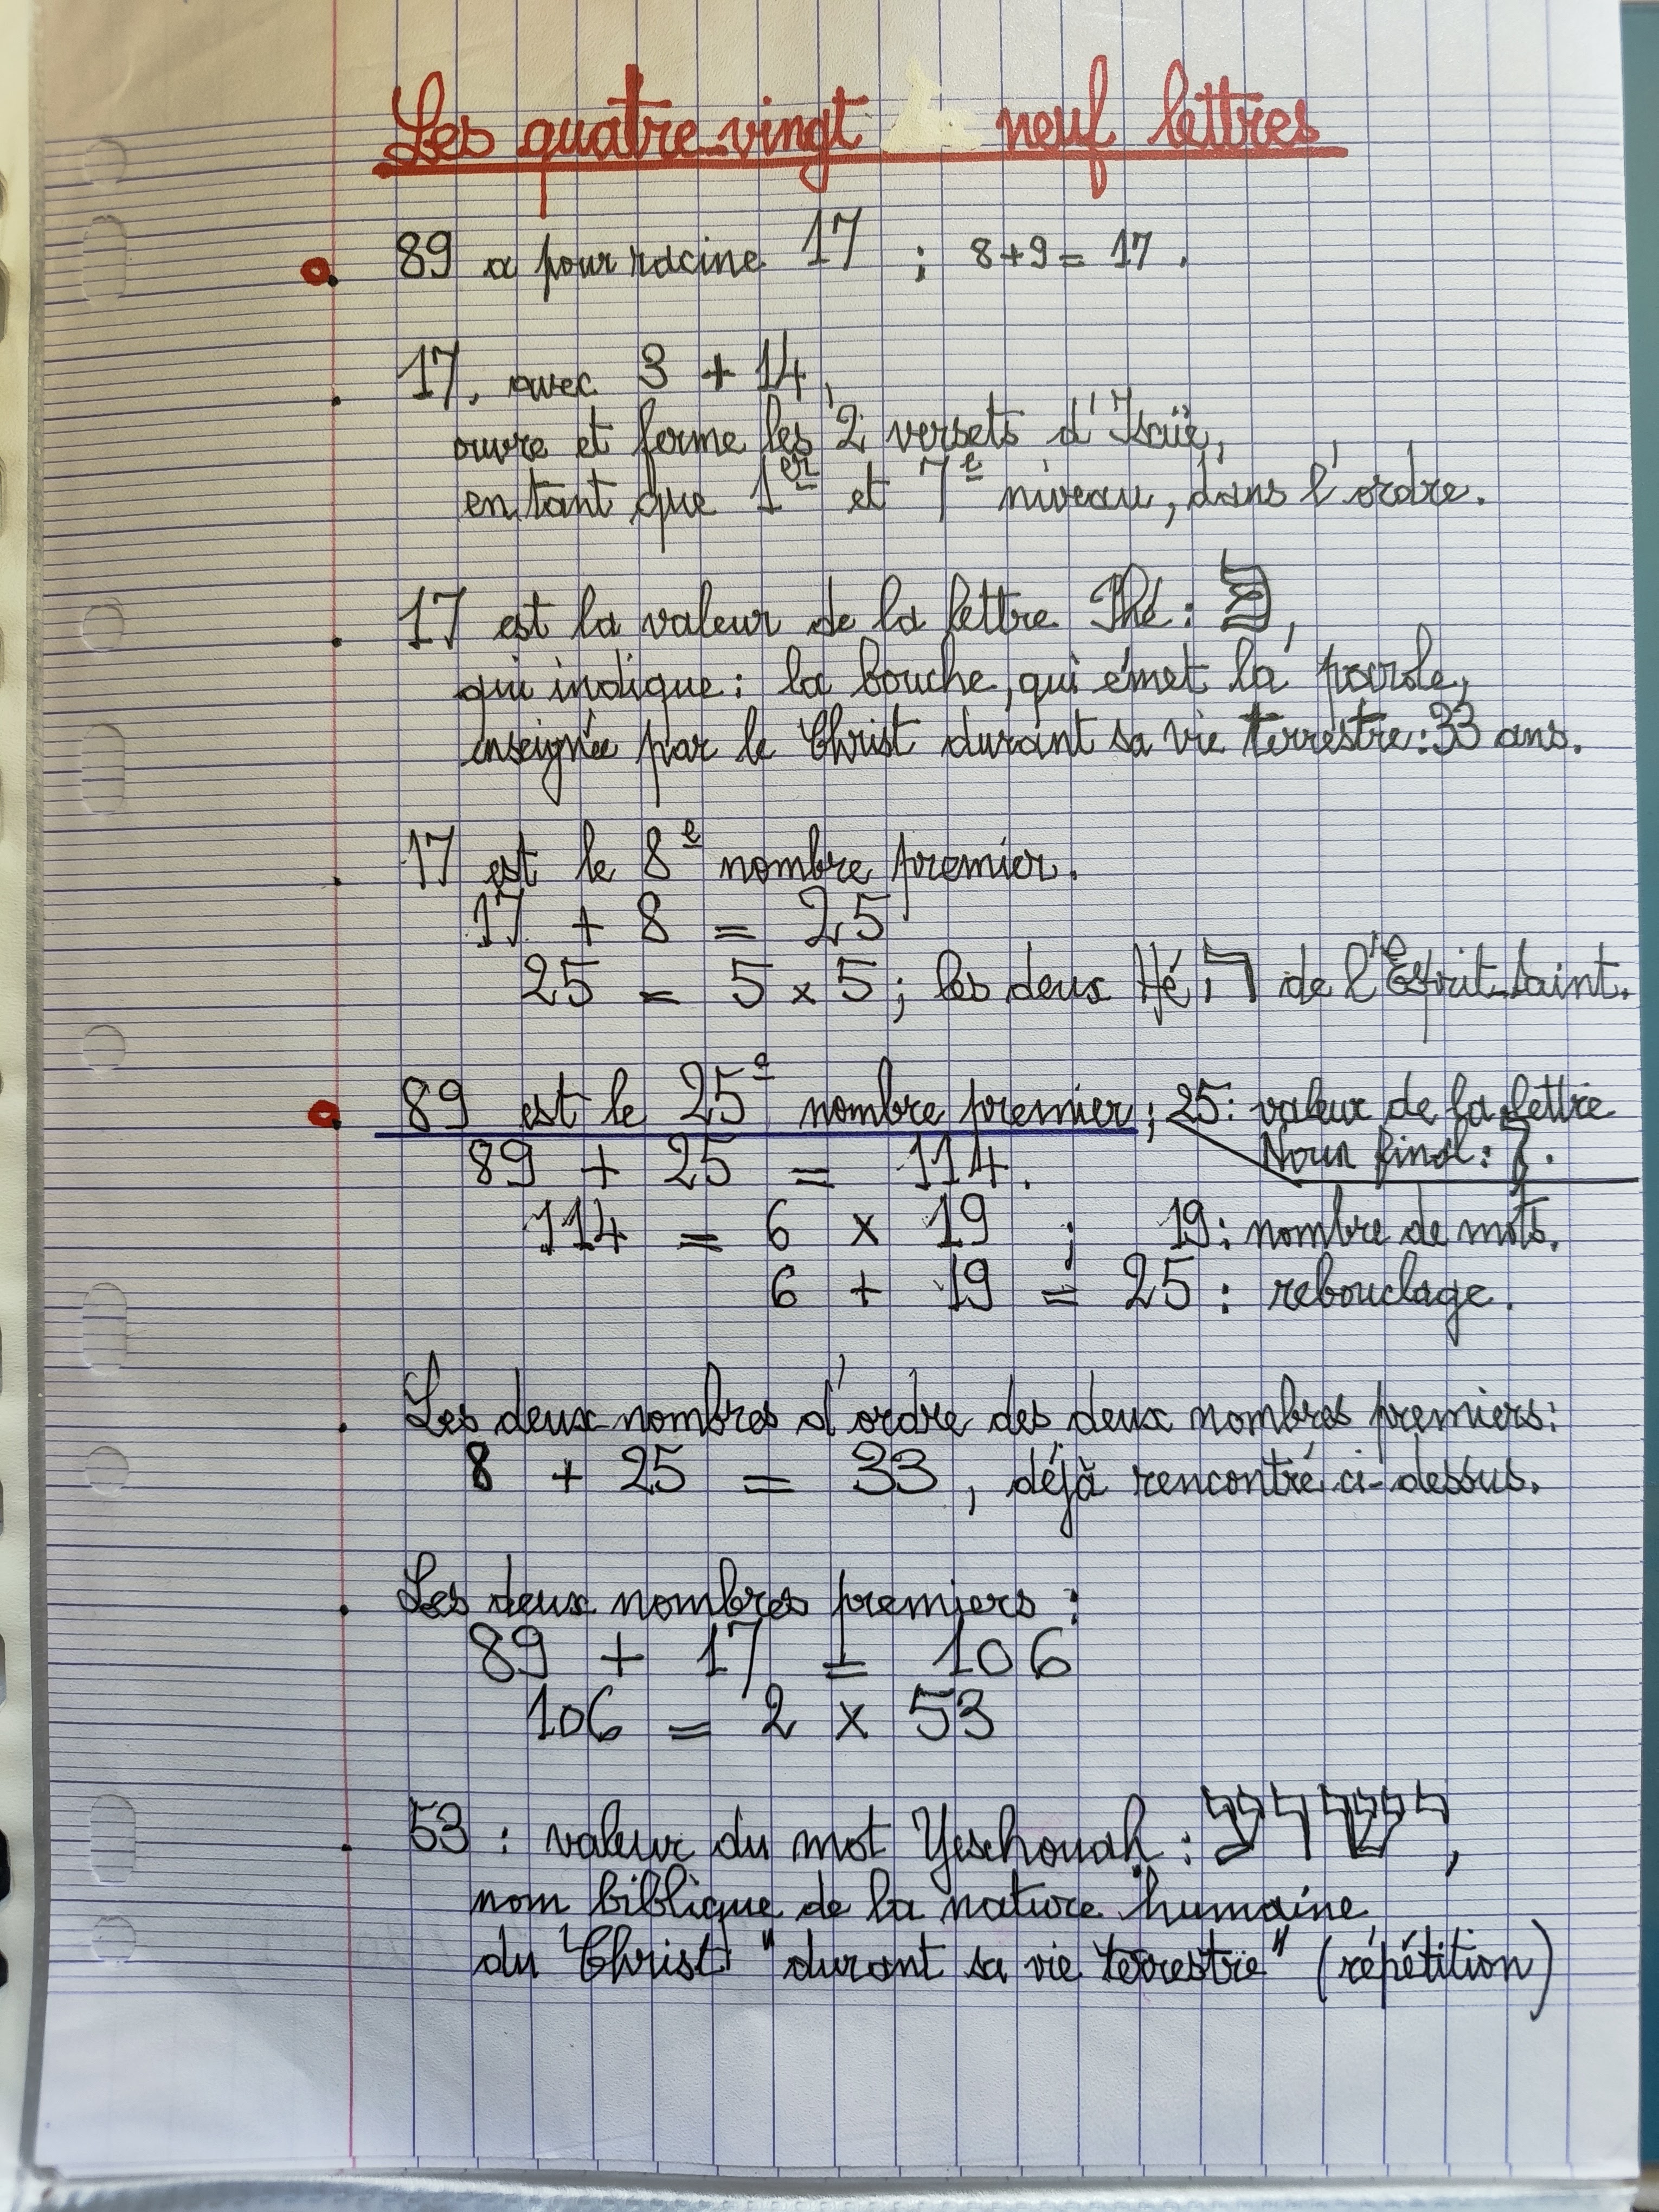 Les quatre-vingt neuf lettres
89 a pour racine 17 ; 8+9 = 17.
17, avec 3 + 14,
ouvre et forme les 2 versets d'Isaïe,
en tant que 1er et 7e niveau, dans l'ordre.
17 est la valeur de la lettre Phé : פ,
qui indique : la bouche, qui émet la parole,
enseignée par le Christ durant sa vie terrestre : 33 ans.
17 est le 8e nombre premier.
17 + 8 = 25
25 = 5 x 5 ; les deux Hé ה de l'Esprit-Saint.
89 est le 25e nombre premier ; 25 : valeur de la lettre
Noun final : ן.
89 + 25 = 114.
114 = 6 x 19 ; 19 : nombre de mots.
6 + 19 = 25 : rebouclage.
Les deux nombres d'ordre des deux nombres premiers :
8 + 25 = 33, déjà rencontré ci-dessus.
Les deux nombres premiers :
89 + 17 = 106
106 = 2 x 53
53 : valeur du mot Yeschouah : ישוע,
nom biblique de la nature humaine
du Christ "durant sa vie terrestre" (répétition)